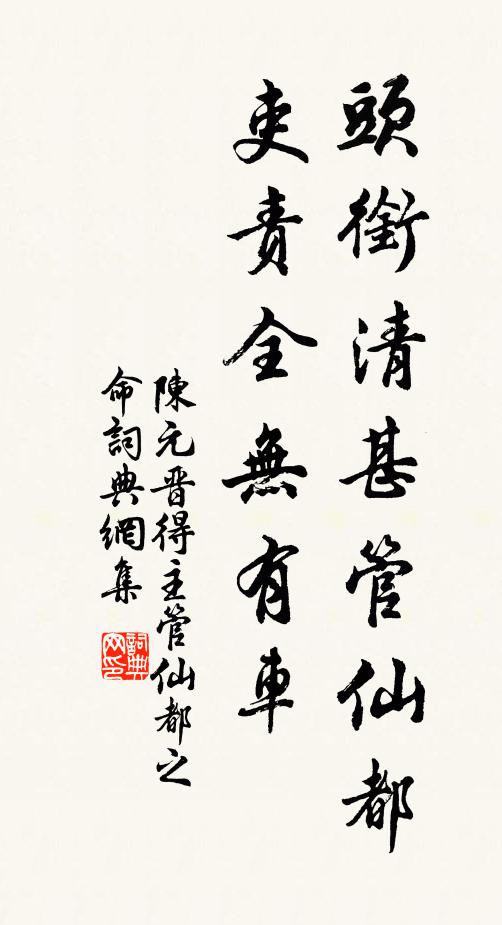 頭銜清甚管仙都
吏責全無有車
陳元晋得主管仙都之
命詞典網集
詞典
网印